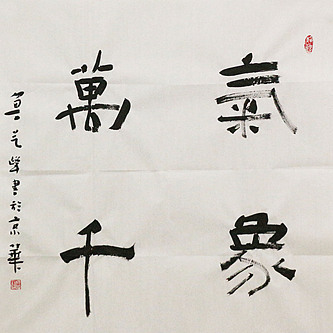 氣象
萬千
書於京華